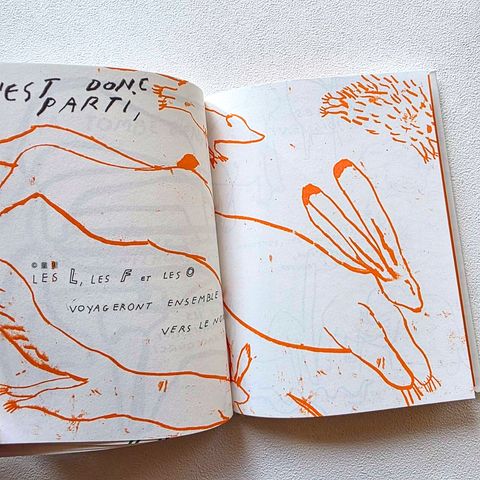 EST DONC
PARTI,
LES L, LES F ET LES O
VOYAGERONT ENSEMBLE
VERS LE